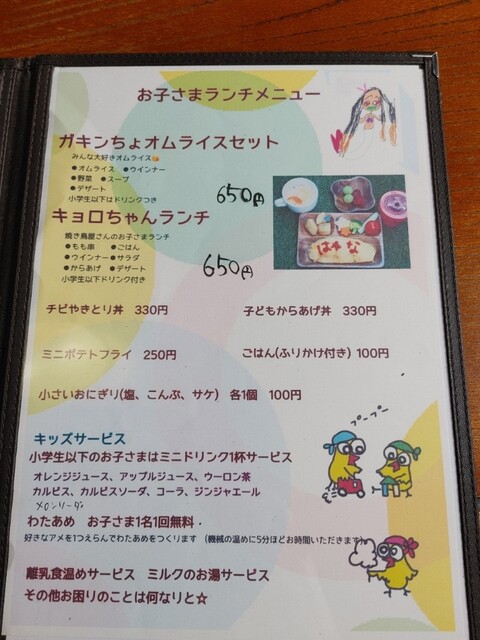 お子さまランチメニュー
ガキンちょオムライスセット
みんな大好きオムライス
●オムライス ●ウインナー
●野菜 ●スープ
●デザート
小学生以下はドリンクつき
650円
キョロちゃんランチ
焼き鳥屋さんのお子さまランチ
●もも串 ●ごはん
●ウインナー ●サラダ
●からあげ ●デザート
小学生以下ドリンク付き
650円
はるな
チビやきとり丼 330円
子どもからあげ丼 330円
ミニポテトフライ 250円
ごはん(ふりかけ付き) 100円
小さいおにぎり(塩、こんぶ、サケ) 各1個 100円
キッズサービス
小学生以下のお子さまはミニドリンク1杯サービス
オレンジジュース、アップルジュース、ウーロン茶
カルピス、カルピスソーダ、コーラ、ジンジャエール
メロンソーダ
プープー
わたあめ お子さま1名1回無料
好きなアメを1つえらんでわたあめをつくります (機械の温めに5分ほどお時間いただきます)
離乳食温めサービス ミルクのお湯サービス
その他お困りのことは何なりと☆